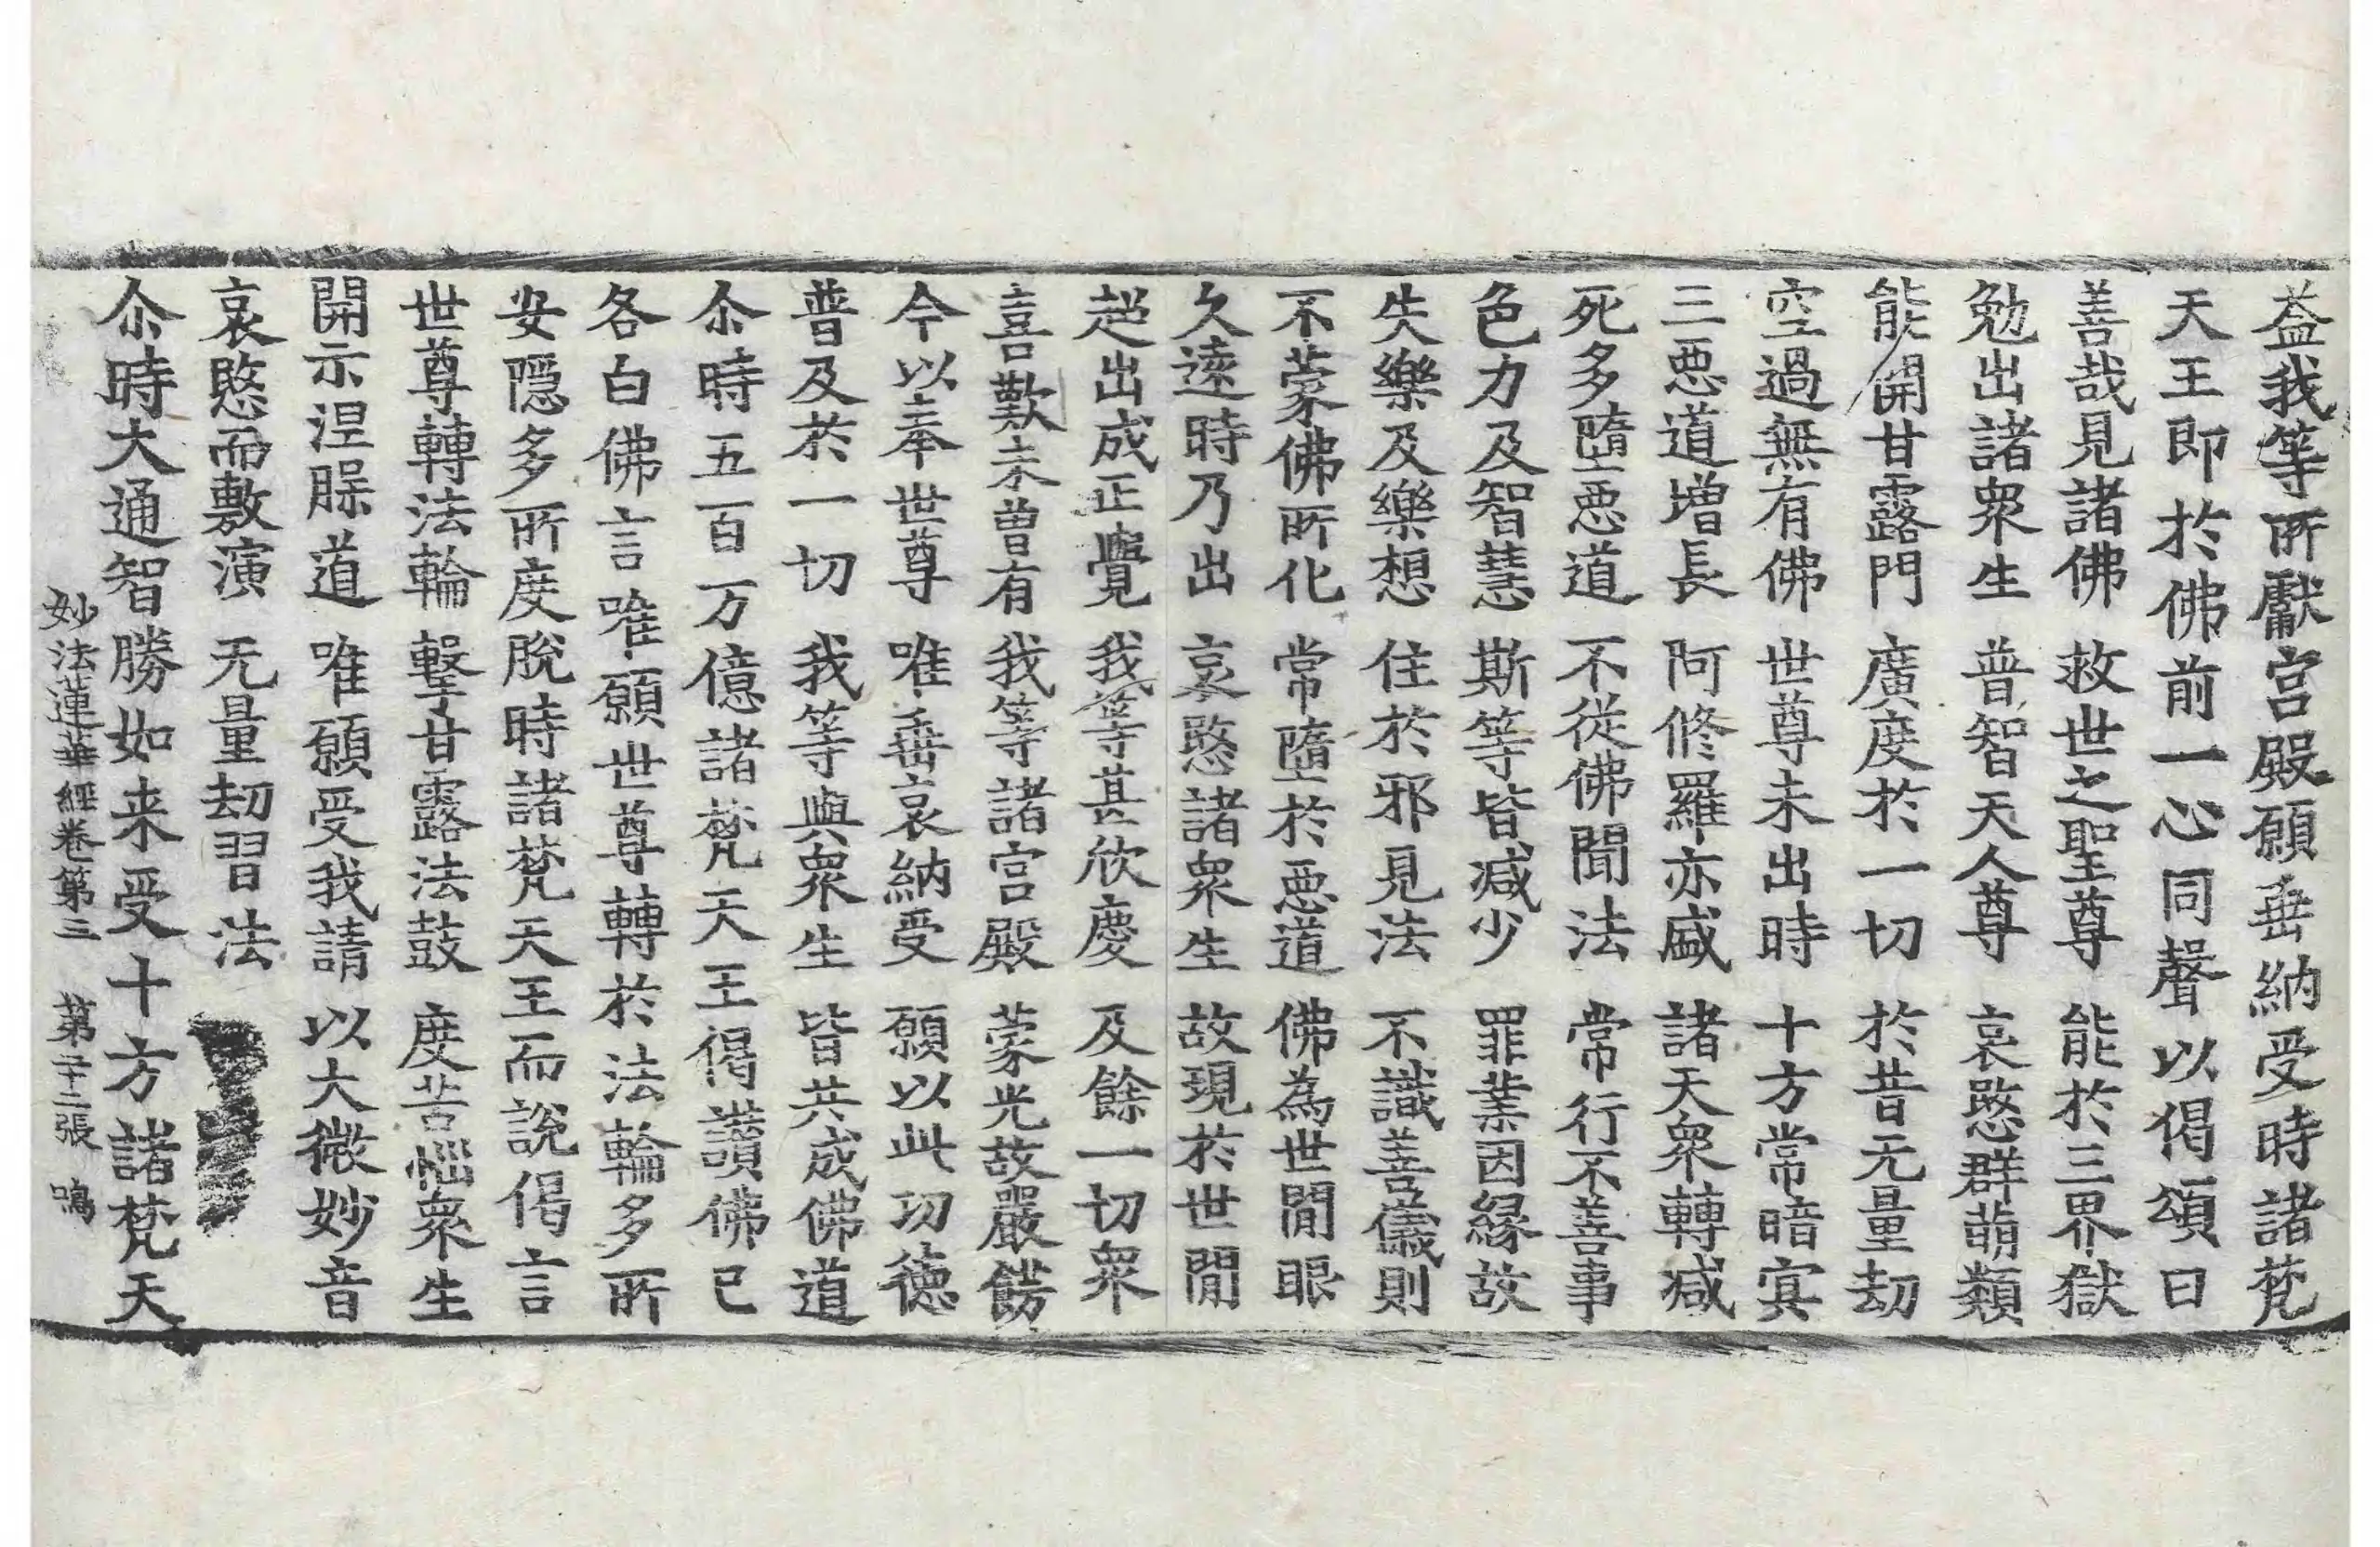 益我等所獻宮殿願垂納受時諸梵
天王即於佛前一心同聲以偈頌曰
善哉見諸佛 救世之聖尊 能於三界獄
勉出諸衆生 普智天人尊 哀愍群萌類
能開甘露門 廣度於一切 於昔无量劫
空過無有佛 世尊未出時 十方常暗冥
三惡道增長 阿修羅亦盛 諸天衆轉減
死多墮惡道 不從佛聞法 常行不善事
色力及智慧 斯等皆減少 罪業因緣故
失樂及樂想 住於邪見法 不識善儀則
不蒙佛所化 常墮於惡道 佛為世間眼
久遠時乃出 哀愍諸衆生 故現於世間
超出成正覺 我等甚欣慶 及餘一切衆
喜歎未曾有 我等諸宮殿 蒙光故嚴飾
今以奉世尊 唯垂哀納受 願以此功德
普及於一切 我等與衆生 皆共成佛道
尒時五百万億諸梵天王偈讚佛已
各白佛言唯願世尊轉於法輪多所
安隱多所度脫時諸梵天王而說偈言
世尊轉法輪 擊甘露法鼓 度苦惱衆生
開示涅槃道 唯願受我請 以大微妙音
哀愍而敷演 无量劫習法
尒時大通智勝如来受十方諸梵天
妙法蓮華經卷第三 第二十二張 鳴